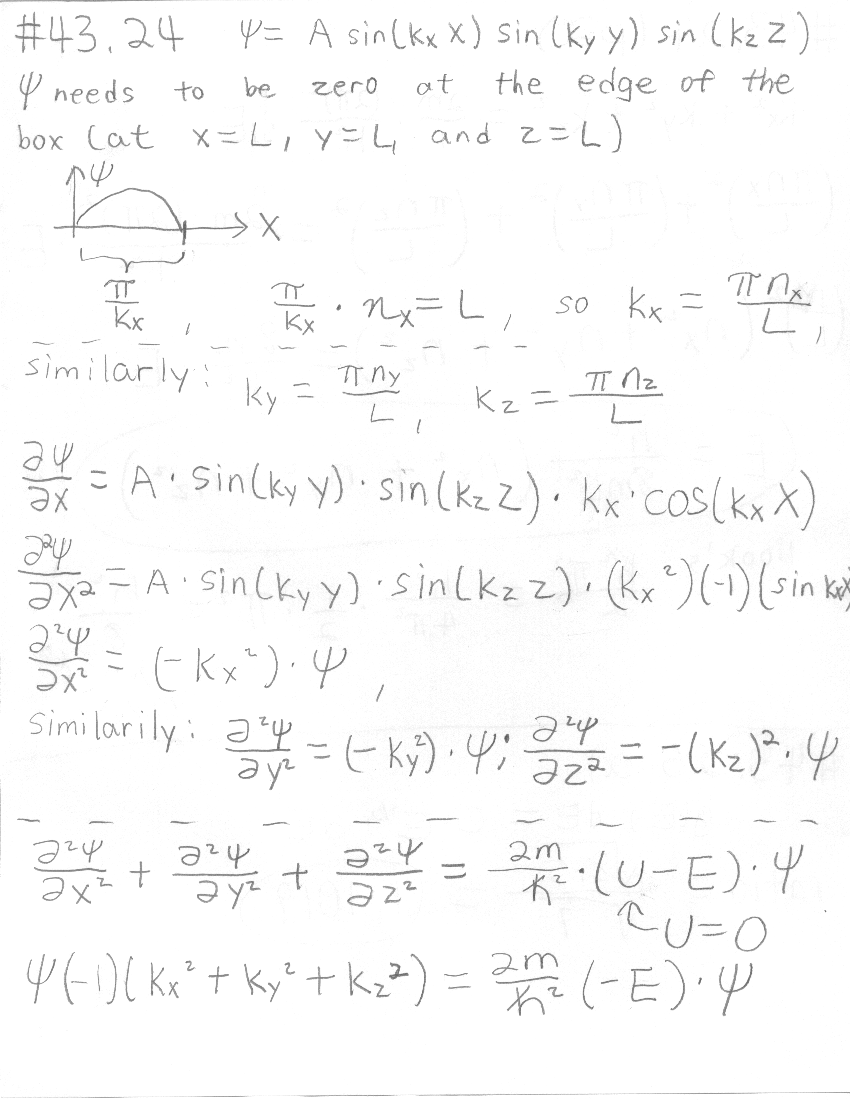 #43.24 ψ = A sin(kx x) sin(ky y) sin(kz z)
ψ needs to be zero at the edge of the
box (at x=L, y=L, and z=L)
ψ
x
π/kx , π/kx · nx = L , so kx = πnx/L ,
similarly: ky = πny/L , kz = πnz/L
∂ψ/∂x = A · sin(ky y) · sin(kz z) · kx · cos(kx x)
∂²ψ/∂x² = A · sin(ky y) · sin(kz z) · (kx²)(-1)(sin kx x)
∂²ψ/∂x² = (-kx²) · ψ ,
similarily: ∂²ψ/∂y² = (-ky²) · ψ; ∂²ψ/∂z² = -(kz)² · ψ
∂²ψ/∂x² + ∂²ψ/∂y² + ∂²ψ/∂z² = 2m/ħ² · (U-E) · ψ
U=0
ψ(-1)(kx² + ky² + kz²) = 2m/ħ² (-E) · ψ